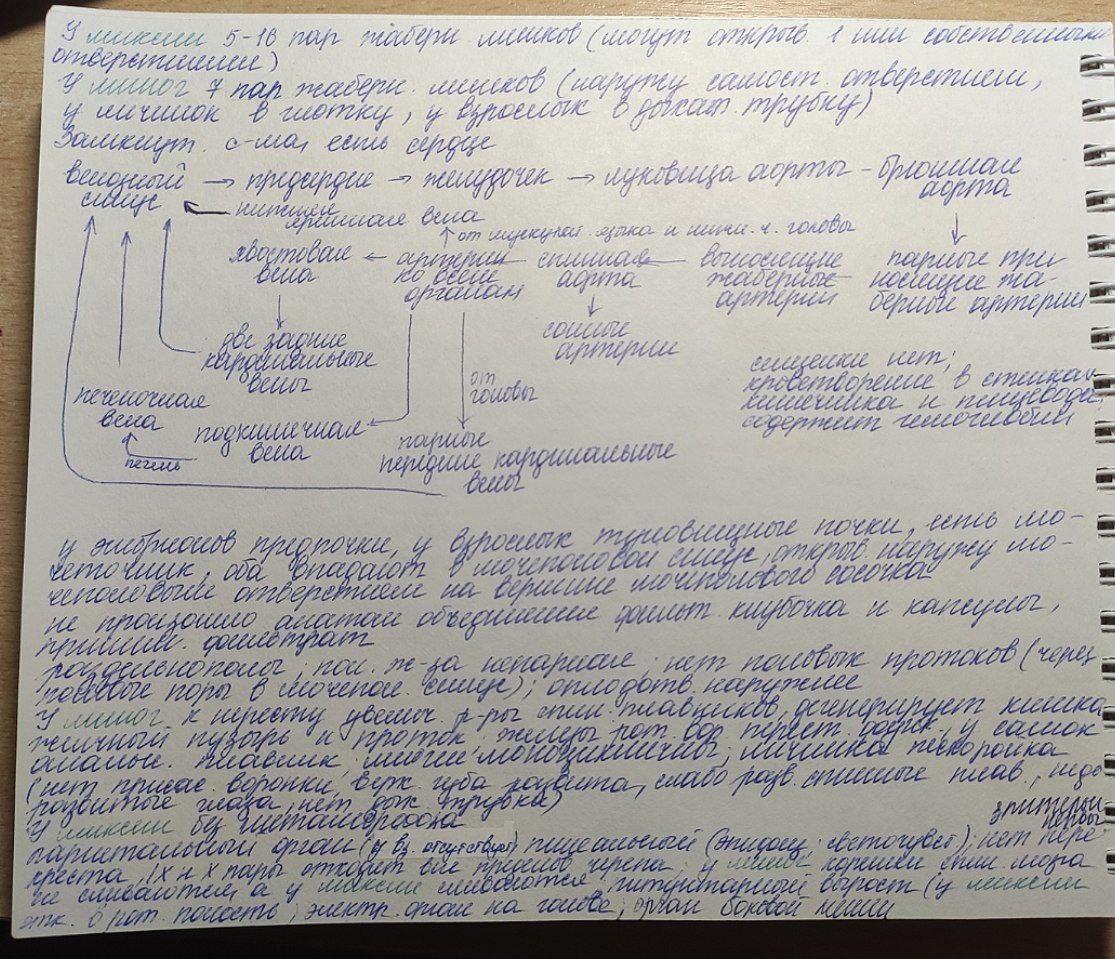 У миксин 5-16 пар жаберн. мешков (могут открыв. 1 или собственными
отверстиями)
У миног 7 пар жаберн. мешков (наружу самост. отверстием,
у личинок в глотку, у взрослых в дыхат. трубку)
Замкнут. с-ма, есть сердце
венозный синус → предсердие → желудочек → луковица аорты - брюшная аорта
нижняя яремная вена
от мускулат. языка и нижн. ч. головы
хвостовая вена ← артерии ко всем органам спинная аорта выносящие жаберные артерии парные приносящие жаберные артерии
две задние кардинальные вены
сонные артерии
селезенки нет;
кроветворение в стенках
кишечника и пищевода,
содержит гемоглобин
от головы
печеночная вена
печень
подкишечная вена
парные
передние кардинальные
вены
у эмбрионов предпочки, у взрослых туловищные почки, есть мо-
четочник, оба впадают в мочеполовой синус, открыв. наружу мо-
чеполовым отверстием на вершине мочеполового сосочка
не произошло анатом. объединения фильт. клубочка и капсулы,
фильтрат
раздельнополы; пол. ж-за непарная; нет половых протоков (через
половые поры в мочепол. синус); оплодотв. наружнее
У миног к нересту увелич. р-ры спин. плавников, дегенерирует кишка,
желчный пузырь и проток, железы рот. вор. перест. у самок
анальн. плавник; моноцикличны; личинка пескоройка
(нет присас. воронки, верх. губа развита, слабо разв. спинные плав., недо-
развитые глаза, нет дых. трубки)
У миксин без метаморфоза
зрительн. нервы
париетальный орган (у вз. отсутствует) пинеальный (светочувст.); нет пере-
креста, IX и X пары отходят вне пределов черепа; у миног корешки спин. мозга
не сливаются, а у миксин сливаются, питуитарный вырост (у миксин
отк. в рот. полость; электр. орган на голове; орган боковой линии